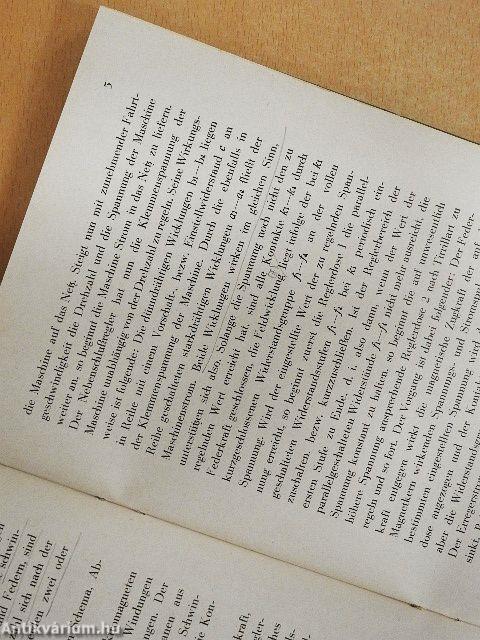 5
die Maschine auf das Netz. Steigt nun mit zunehmender Fahrt-
geschwindigkeit die Drehzahl und die Spannung der Maschine
weiter an, so beginnt die Maschine Strom in das Netz zu liefern.
Der Nebenschlußregler hat nun die Klemmenspannung der
Maschine unabhängig von der Drehzahl zu regeln. Seine Wirkungs-
weise ist folgende: Die dünndrähtigen Wicklungen b₁—b₂ liegen
in Reihe mit einem Vorschalt-, bezw. Einstellwiderstand c an
der Klemmenspannung der Maschine. Durch die ebenfalls in
Reihe geschalteten starkdrähtigen Wicklungen a₁—a₂ fließt der
Maschinenstrom. Beide Wicklungen wirken im gleichen Sinn,
unterstützen sich also. Solange die Spannung noch nicht den zu
regelnden Wert erreicht hat, sind alle Kontakte k₁—k₄ durch
Federkraft geschlossen, die Feldwicklung liegt infolge der bei k₁
kurzgeschlossenen Widerstandsgruppe f₁—f₄ an der vollen
Spannung. Wird der eingestellte Wert der zu regelnden Span-
nung erreicht, so beginnt zuerst die Reglerdose 1 die parallel-
geschalteten Widerstandsstufen f₁—f₄ bei k₁ periodisch ein-
zuschalten, bezw. kurzzuschließen. Ist der Reglerbereich der
ersten Stufe zu Ende, d. i. also dann, wenn der Wert der
parallelgeschalteten Widerstände f₁—f₄ nicht mehr ausreicht, die
Spannung konstant zu halten, so beginnt die auf unwesentlich
höhere Spannung ansprechende Reglerdose 2 nach Tirillart zu
regeln und so fort. Der Vorgang ist dabei folgender: Der Feder-
kraft entgegen wirkt die magnetische Zugkraft der auf
Magnetkern wirkenden Spannungs- und Stromspul
bestimmten eingestellten Spannung wird der
dose angezogen und der Kontak
aber die Widerstandsgru
Der Erregerstrom
sinkt,
schwin-
nd Federn, sind
sich nach der
en zwei oder
Schema, Ab-
magneten
Windungen
ngen. Der
nnen aus
Schwin-
ie Kon-
Regler-
es
Antikvárium.hu